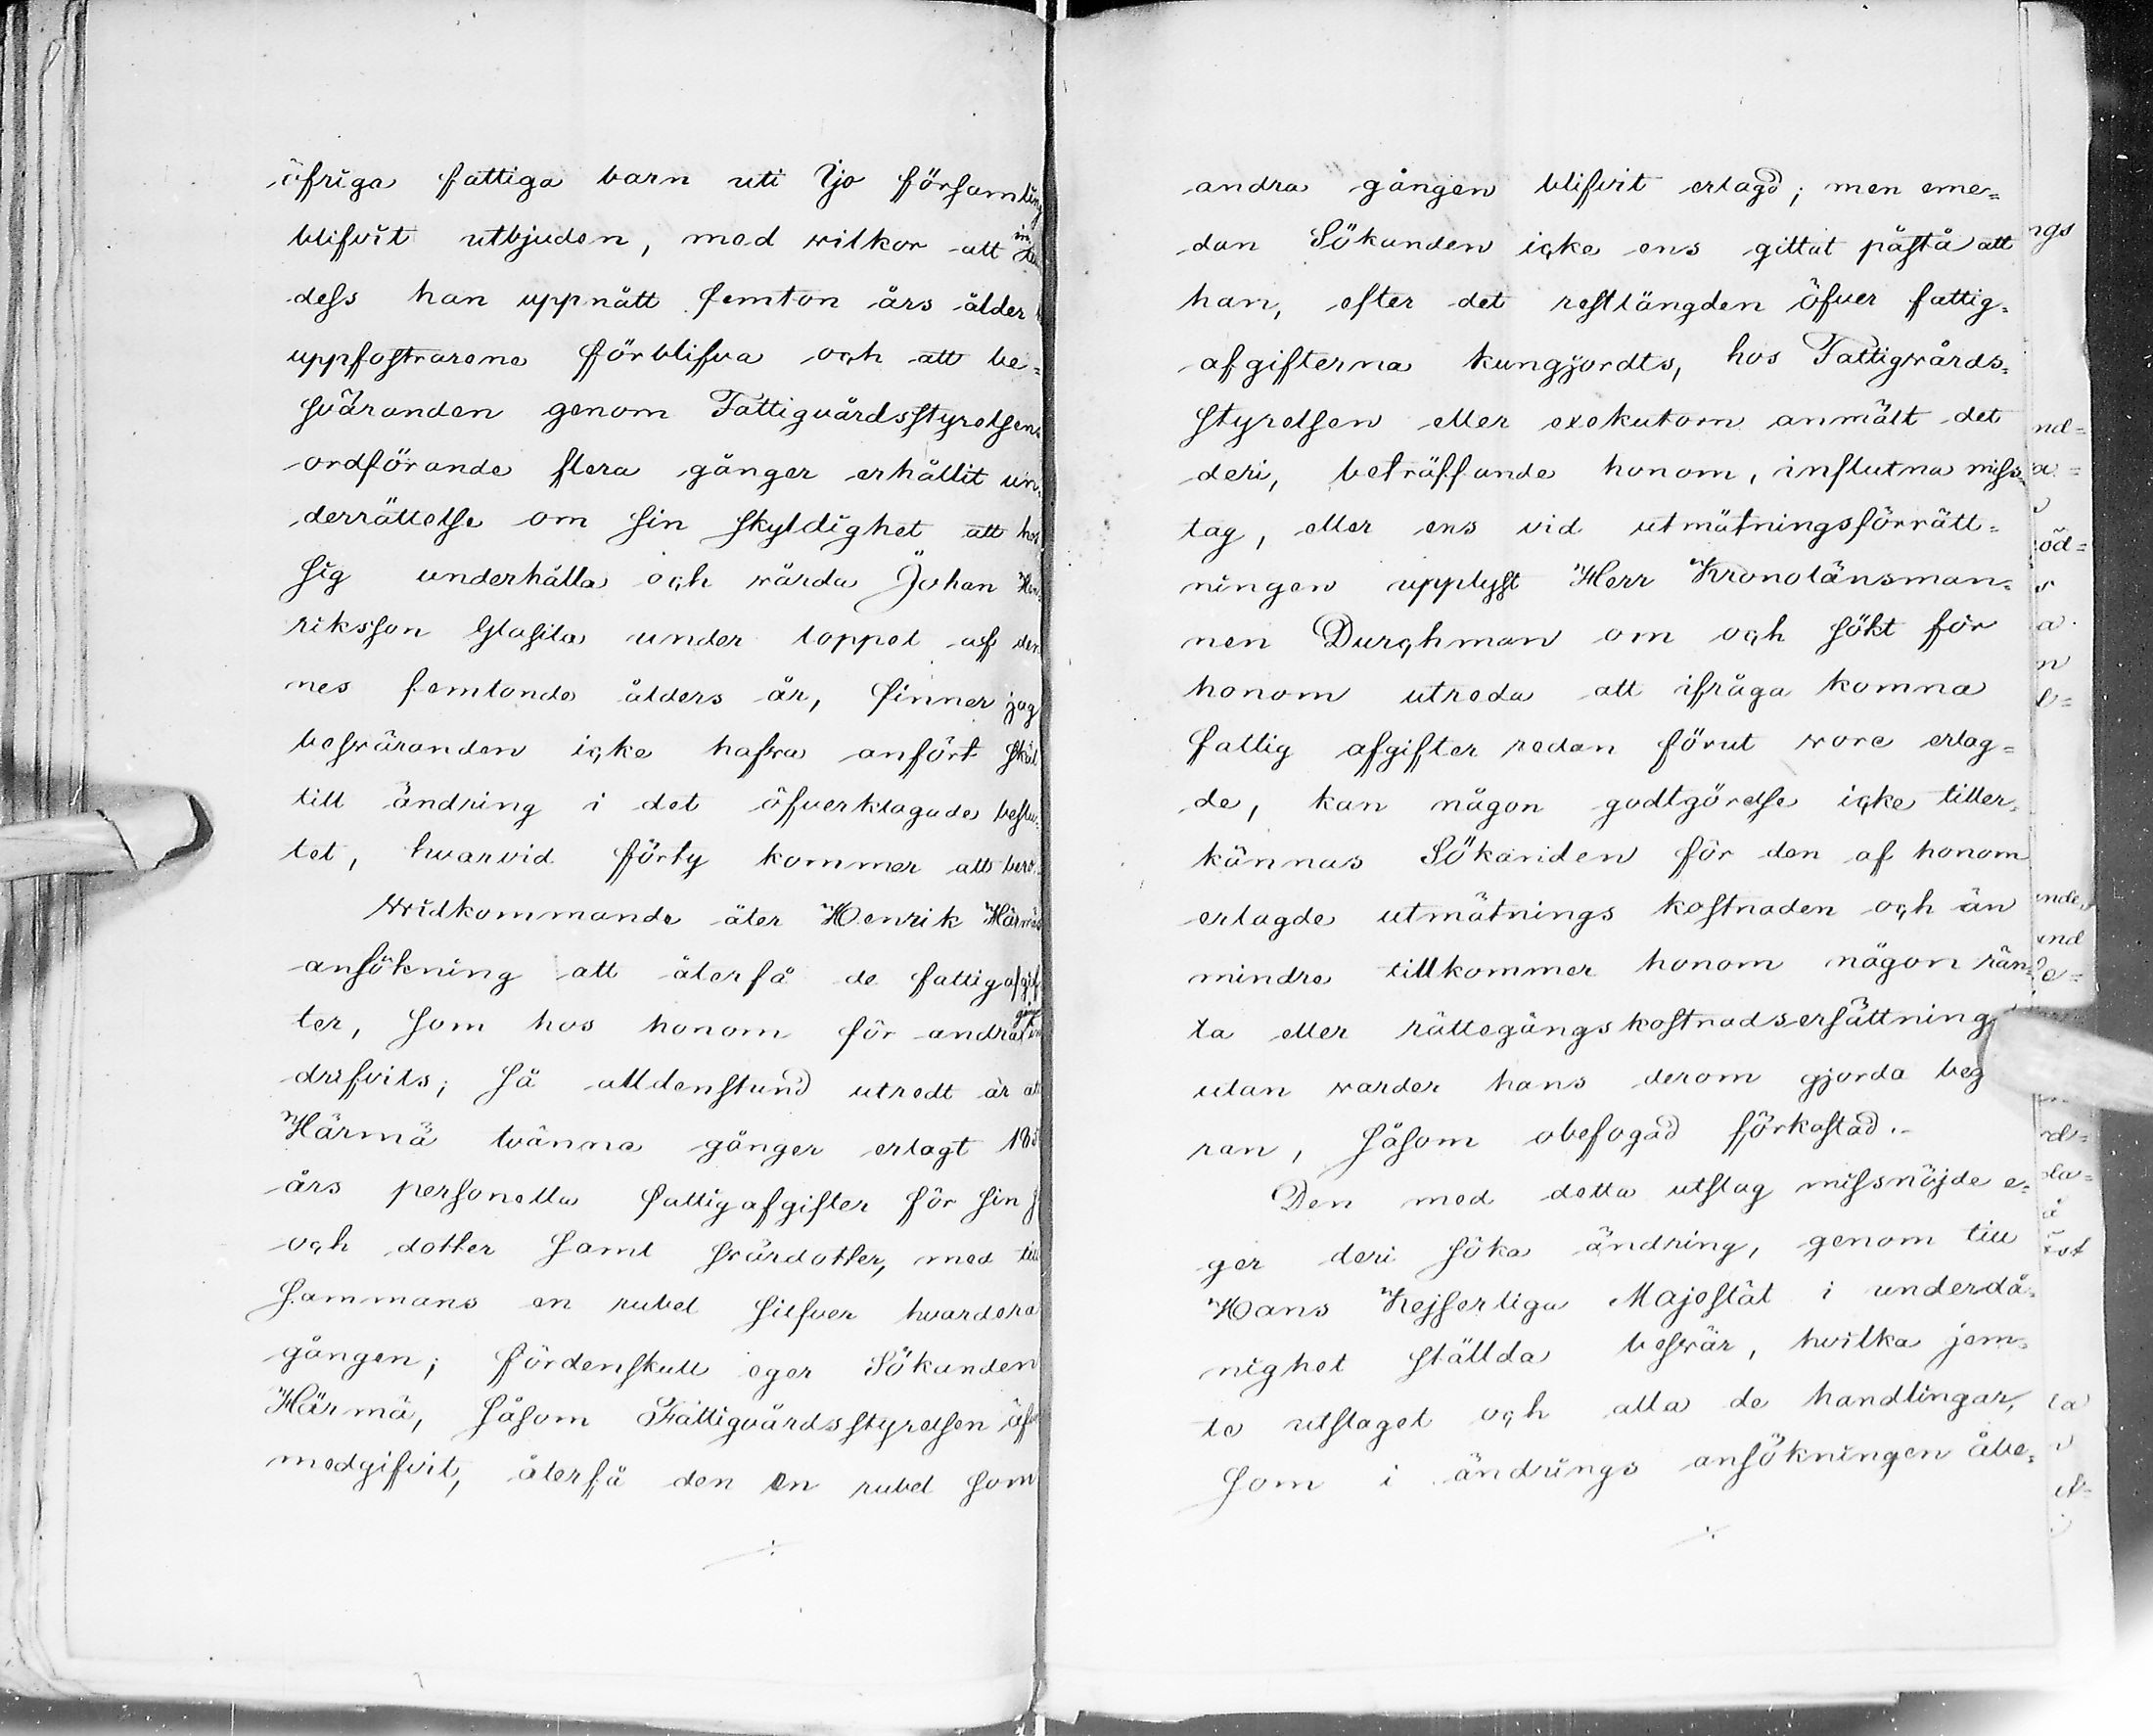 öfriga fattiga barn uti Ijo församling
blifvit utbjuden, med wilkor att in
dess han uppnått femton års ålder
uppfostrarene förblifva och att be=
sväranden genom Fattigvårdsstyrelsens
ordförande flera gånger erhållit un=
derrättelse om sin skyldighet att hos
sig underhålla och wårda Johan Hen=
riksson Glasila under loppet af den=
nes femtonde ålders år, finner jag
beswäranden icke hafwa anfört skäl
till ändring i det öfverklagade beslu=
tet, hvarvid förty kommer att bero.
Widkommande åter Henrik Härmäs
ansökning att återfå de fattigafgif
ter, som hos honom för andra gång in
drifvits; så alldenstund utredt är att
Härmä tvänne gånger erlagt 185
års personella fattigafgifter för sin
och dotter samt swärdotter, med till
sammans en rubel silfver hvardera
gången; fördenskull eger Sökanden
Härmä, såsom Fattigvårdsstyrelsen äf
medgifvit, återfå den en rubel som
andra gången blifvit erlagd; men eme=
dan Sökanden icke ens gittat påstå att
han, efter det restlängden öfver fattig=
afgifterna kungjordts, hos Fattigwårds=
styrelsen eller exekutorn anmält det
deri, beträffande honom, influtna miss=
tag, eller ens vid utmätningsförrätt=
ningen upplyst Herr Kronolänsman=
nen Durchman om och sökt för
honom utreda att ifråga komna
fattig afgifter redan förut wore erlag=
de, kan någon godtgörelse icke tiller=
kännas Sökanden för den af honom
erlagde utmätnings kostnaden och än
mindre tillkommer honom någon rän=
ta eller rättegångskostnadsersättning
utan warder hans derom gjorda beg
ran, såsom obefogad förkastad.-
Den med detta utslag missnöjde e=
ger deri söka ändring, genom till
Hans Kejserliga Majestät i underdå=
nighet ställda beswär, hvilka jem=
te utslaget och alla de handlingar,
som i ändrings ansökningen åbe=